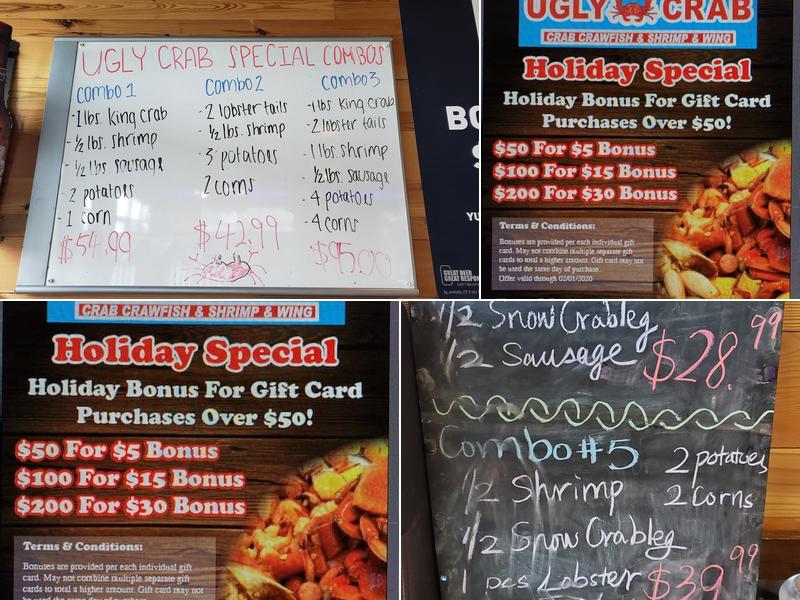 UGLY CRAB SPECIAL COMBOS
Combo 1
-1 lbs. king crab
-½ lbs. shrimp
-½ lbs. sausage
- 2 potatoes
- 1 corn
$54.99
Combo 2
-2 lobster tails
-½ lbs. shrimp
-3 potatoes
2 corns
$42.99
Combo 3
-1 lbs. king crab
-2 lobster tails
-1 lbs. shrimp
½ lbs. sausage
-4 potatoes
-4 corns
$95.00
GREAT BEER
UGLY CRAB
CRAB CRAWFISH & SHRIMP & WING
Holiday Special
Holiday Bonus For Gift Card
Purchases Over $50!
$50 For $5 Bonus
$100 For $15 Bonus
$200 For $30 Bonus
Terms & Conditions:
Bonuses are provided per each individual gift
card. May not combine multiple separate gift
cards to total a higher amount. Gift card may not
be used the same day of purchase.
Offer valid through 02/01/2020
CRAB CRAWFISH & SHRIMP & WING
Holiday Special
Holiday Bonus For Gift Card
Purchases Over $50!
$50 For $5 Bonus
$100 For $15 Bonus
$200 For $30 Bonus
Terms & Conditions:
Bonuses are provided per each individual gift
card. May not combine multiple separate gift
cards to total a higher amount. Gift card may not
1/2 Snow Crableg
1/2 Sausage $28.99
Combo #5
2 potatoes
1/2 Shrimp 2 Corns
1/2 Snow Crableg
1 pcs Lobster $39 99